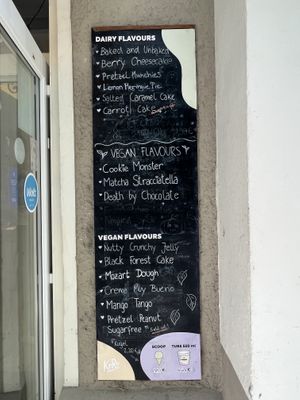 DAIRY FLAVOURS
Baked and Unbaked
Berry Cheesecake
Pretzel Munchies
Lemon Meringue Pie
Salted Caramel Cake
Carrot Cake
VEGAN FLAVOURS
Cookie Monster
Matcha Stracciatella
Death by Chocolate
VEGAN FLAVOURS
Nutty Crunchy Jelly
Black Forest Cake
Mozart Dough
Creme Puy Bueno
Mango Tango
Pretzel Peanut
Sugarfree
Kugel
SCOOP
TUBS 500 ml
Wolt